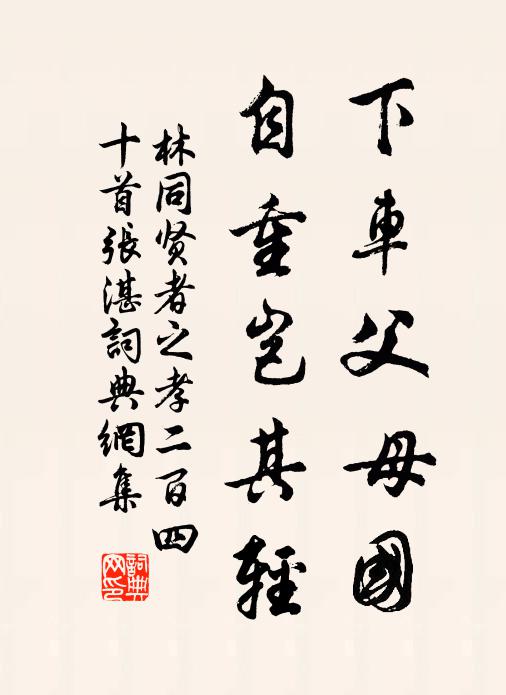 下車父母國
自重豈其輕
林同贤者之孝二百四
十首張湛詞典網集
詞典
网印